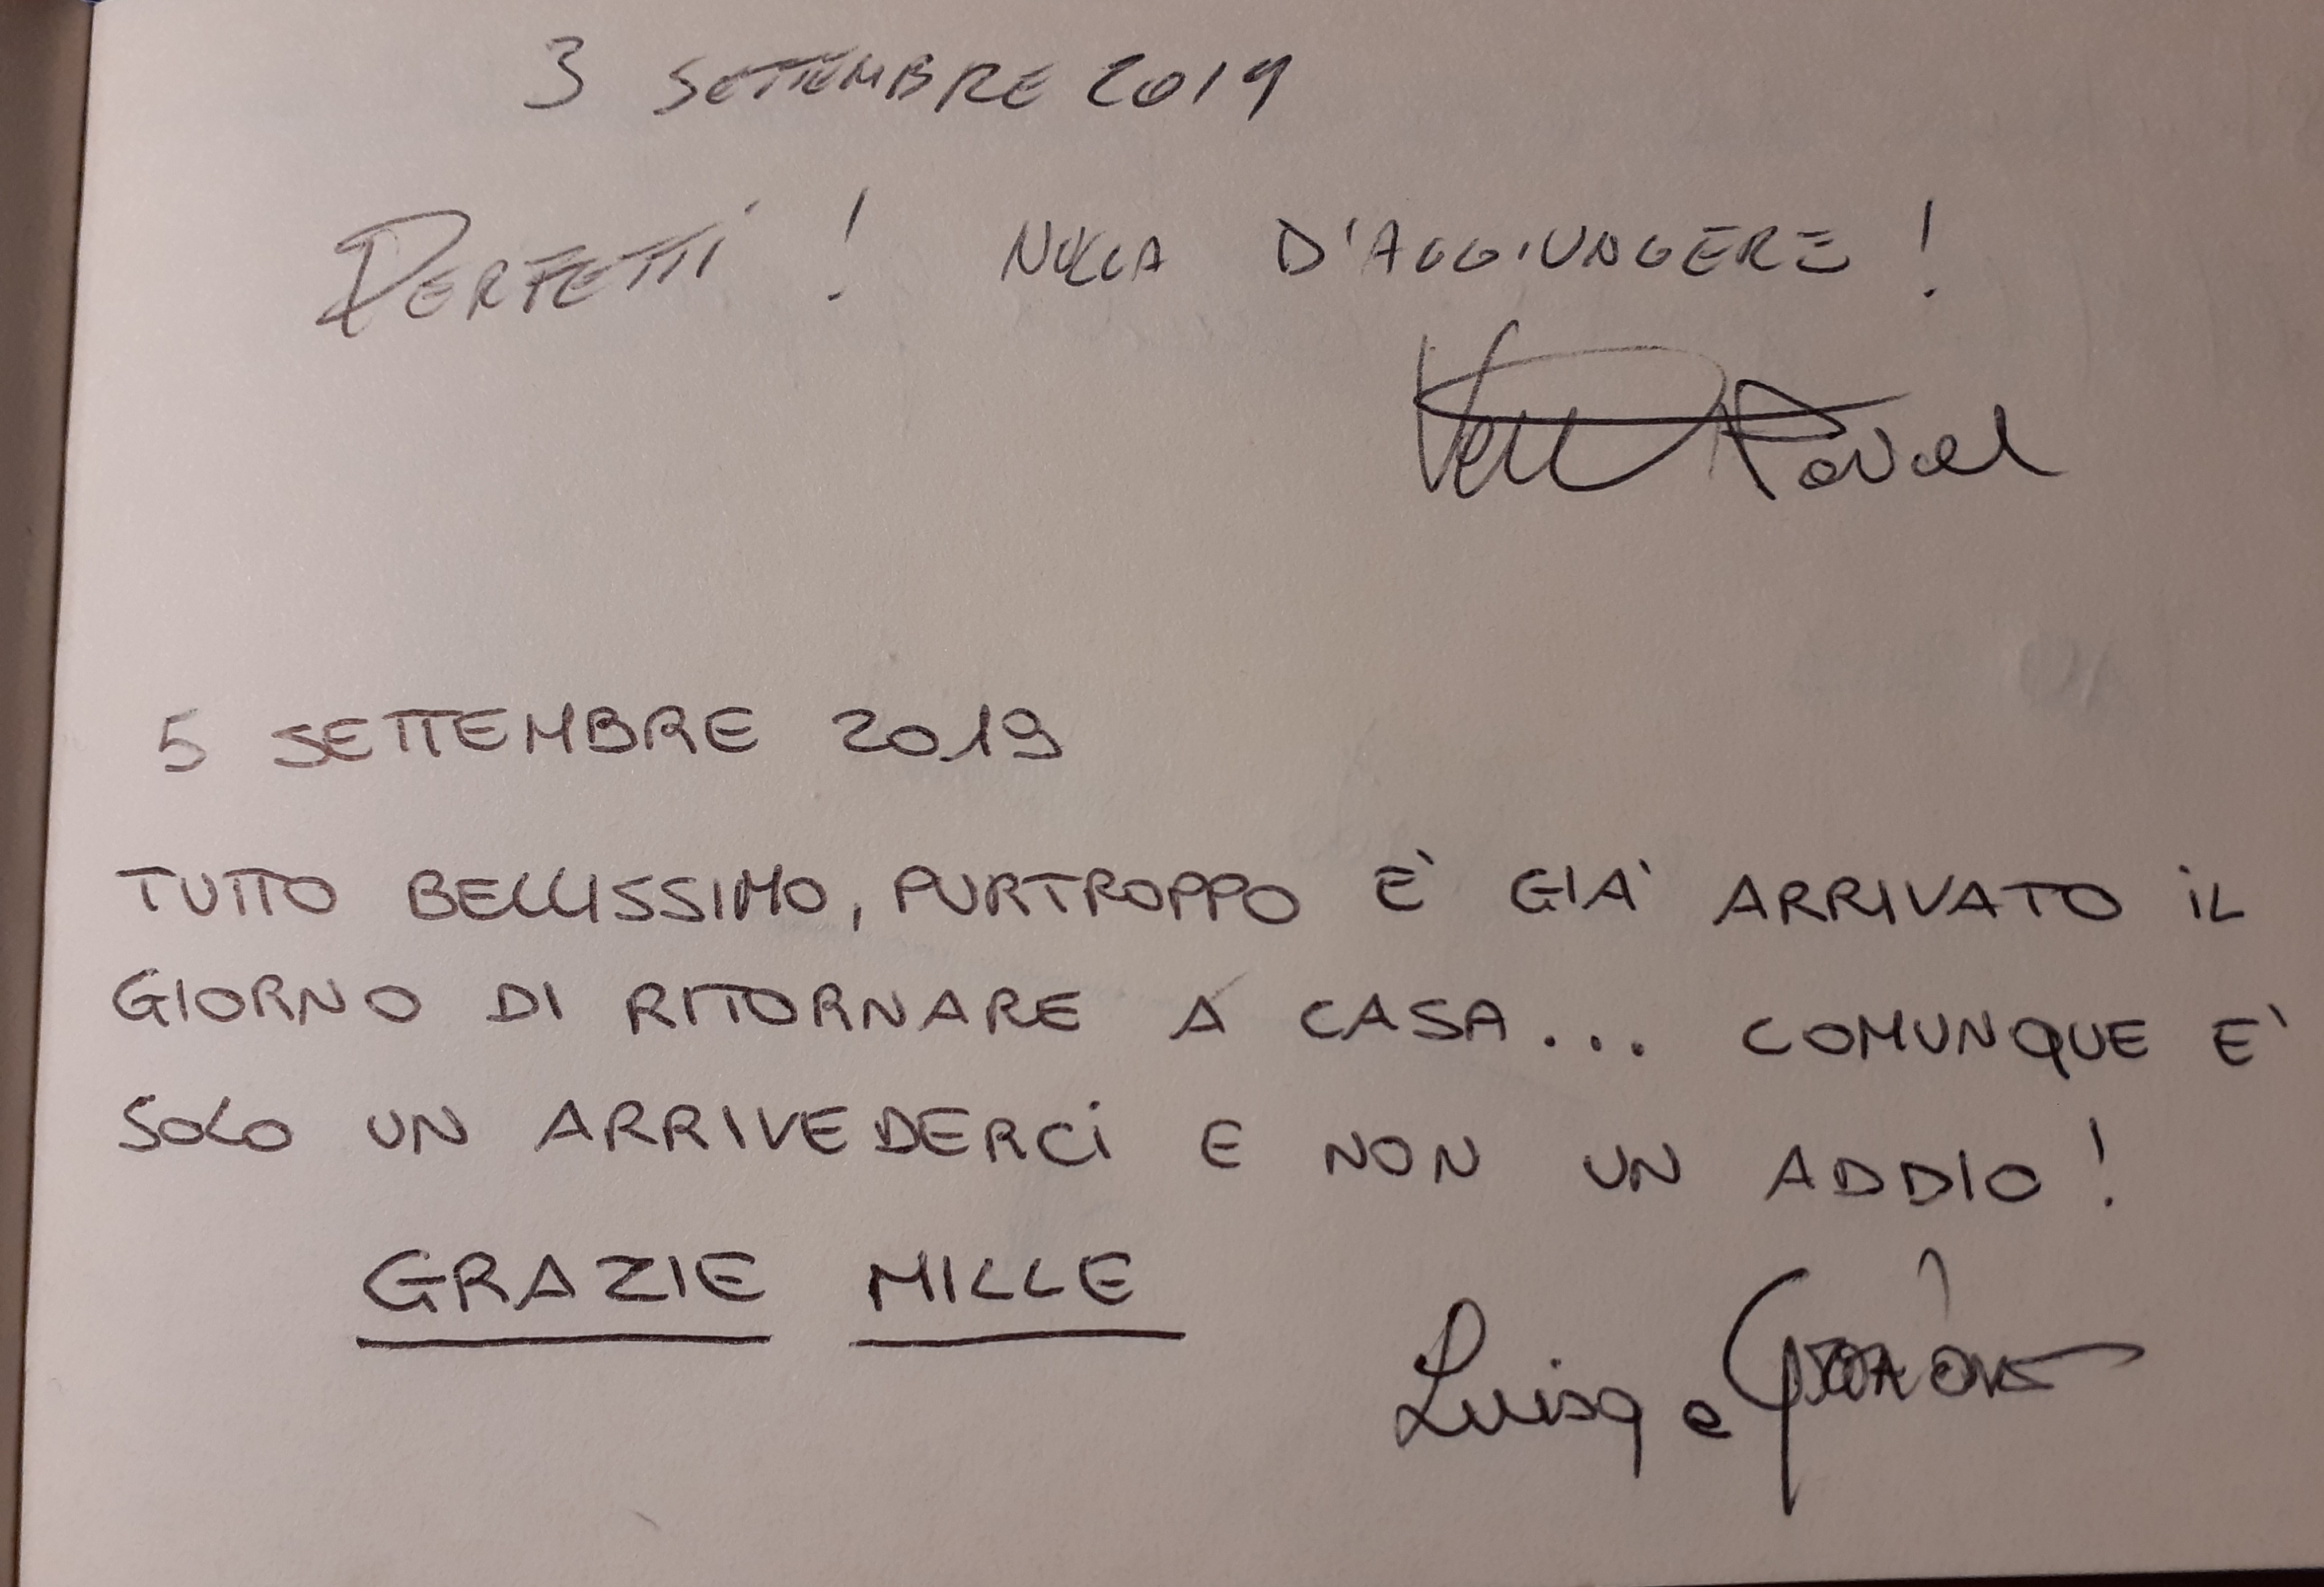 3 SETTEMBRE 2019
PERFETTI! NULLA D'AGGIUNGERE!
5 SETTEMBRE 2019
TUTTO BELLISSIMO, PURTROPPO E' GIA' ARRIVATO IL
GIORNO DI RITORNARE A CASA... COMUNQUE E'
SOLO UN ARRIVEDERCI E NON UN ADDIO!
GRAZIE MILLE
Luisa e